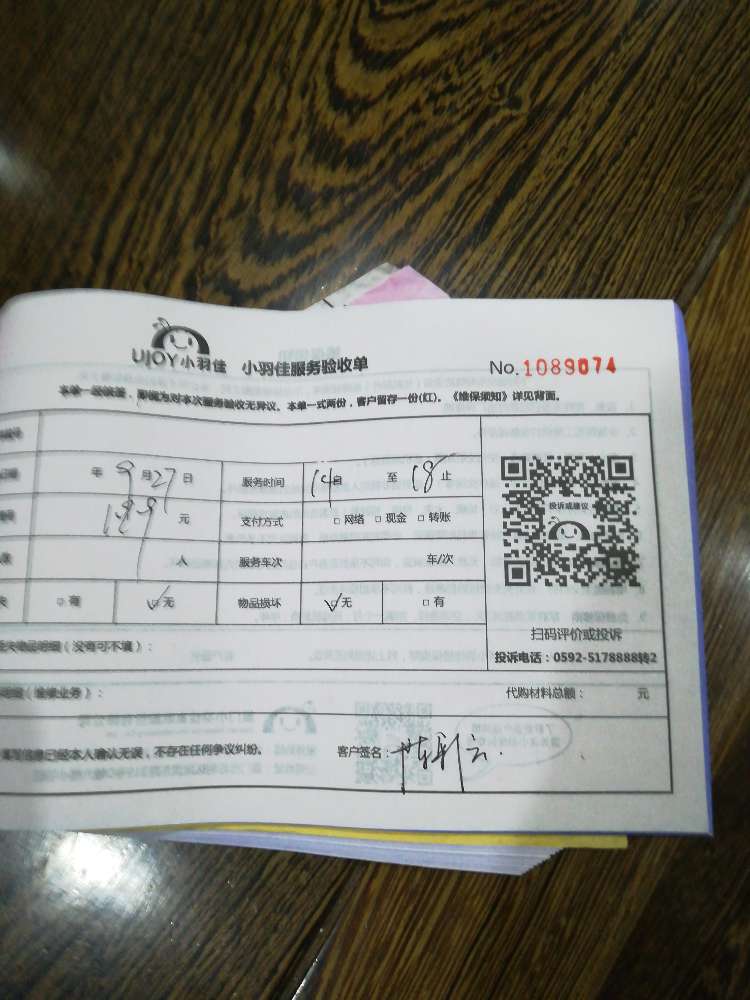 UJOY小羽佳 小羽佳服务验收单 No.1089074
本单一经签署，即视为对本次服务验收无异议。本单一式两份，客户留存一份(红)。《维保须知》详见背面。
年 9月27日 服务时间 14自 至 18止
199元 支付方式 □网络 □现金 □转账
1人 服务车次 车/次
□有 ☑无 物品损坏 ☑无 □有
投诉或建议
扫码评价或投诉
投诉电话：0592-5178888转2
物品明细（没有可不填）：
明细（维修业务）： 代购材料总额： 元
填写信息已经本人确认无误，不存在任何争议纠纷。 客户签名：陈彩云